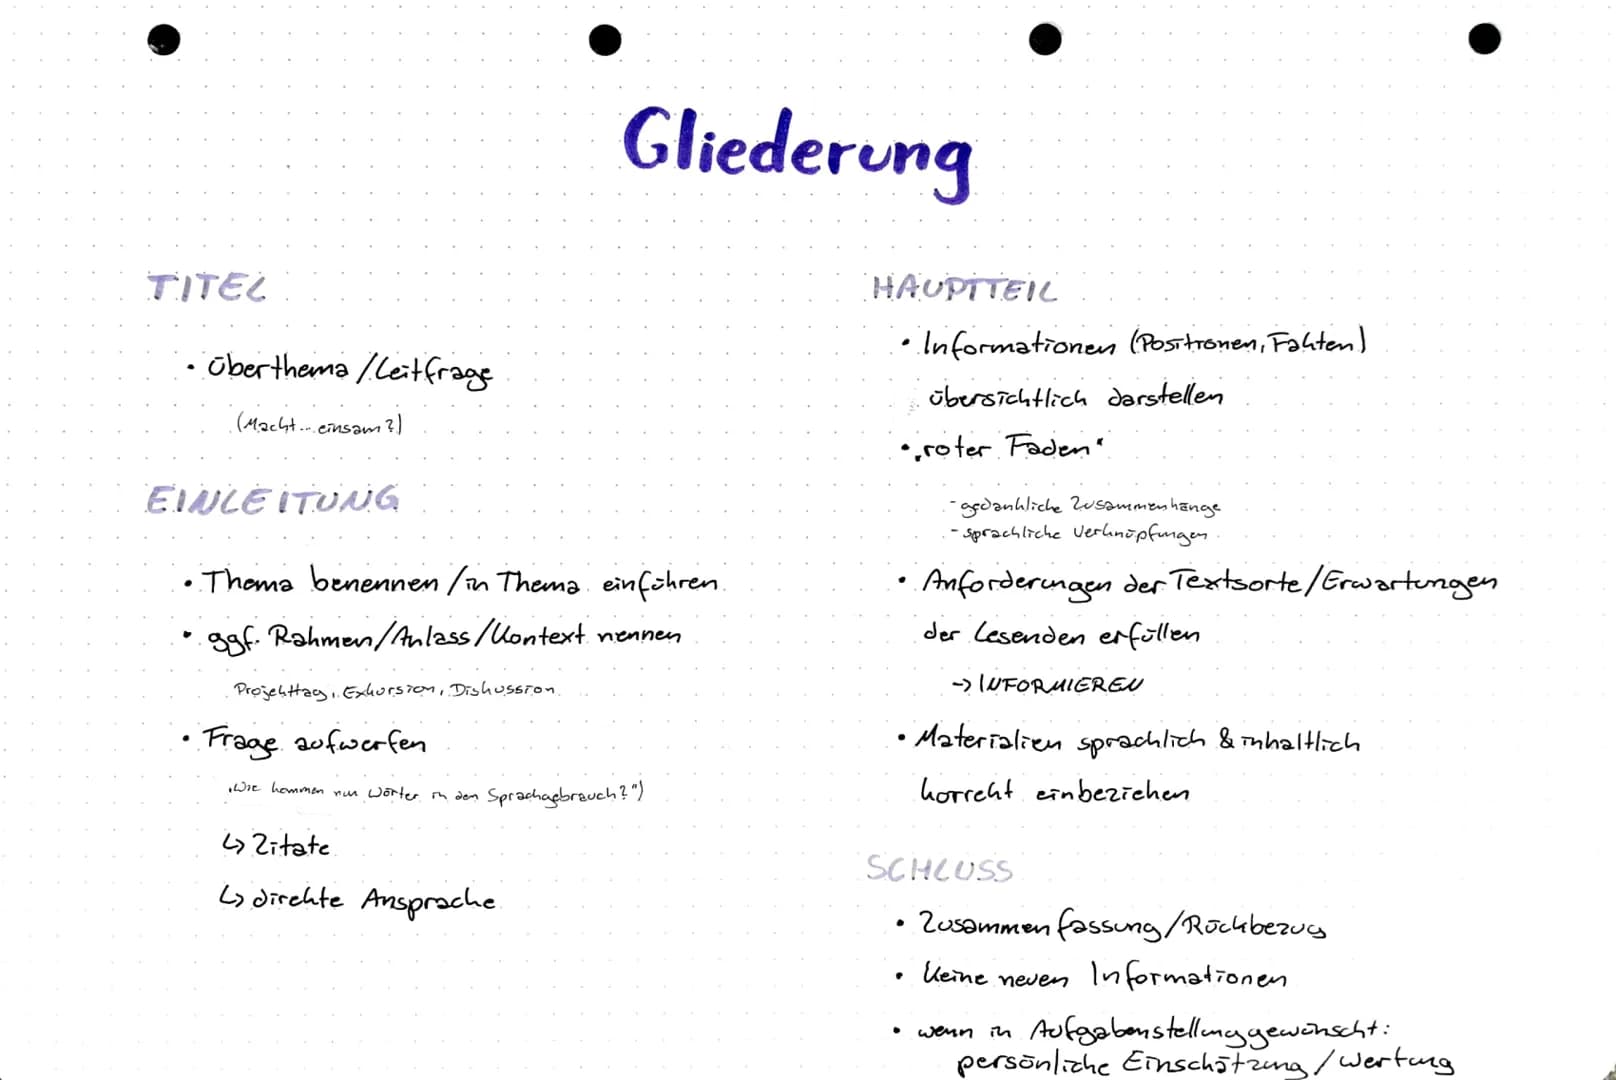 Gliederung
TITEL
• Überthema / Leitfrage
(Macht... einsam?)
EINLEITUNG
• Thema benennen / in Thema einführen
• ggf. Rahmen/Anlass/Kontext nennen
Projekttag, Exkursion, Diskussion
• Frage aufwerfen
„Wie kommen nun Wörter in den Sprachgebrauch?")
↳ Zitate
↳ direkte Ansprache
HAUPTTEIL
• Informationen (Positionen, Fakten)
übersichtlich darstellen
• „roter Faden"
- gedankliche Zusammenhänge
- sprachliche Verknüpfungen
• Anforderungen der Textsorte/Erwartungen
der Lesenden erfüllen
→ INFORMIEREN
• Materialien sprachlich & inhaltlich
korrekt einbeziehen
SCHLUSS
• Zusammenfassung/Rückbezug
• Keine neuen Informationen
• wenn in Aufgabenstellung gewünscht:
persönliche Einschätzung / Wertung